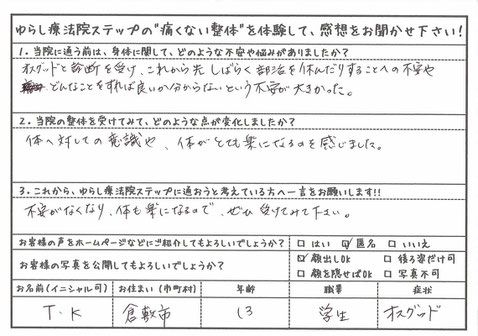 ゆらし療法院ステップの"痛くない整体"を体験して、感想をお聞かせ下さい!
1.当院に通う前は、身体に関して、どのような不安や悩みがありましたか?
オスグッドと診断を受け、これから先しばらく部活を休んだりすることへの不安や
どんなことをすれば良いか分からないという不安が大きかった。
2.当院の整体を受けてみて、どのような点が変化しましたか?
体へ対しての意識や、体がとても楽になるのを感じました。
3.これから、ゆらし療法院ステップに通おうと考えている方へ一言をお願いします!!
不安がなくなり、体も楽になるので、ぜひ受けてみて下さい。
お客様の声をホームページなどにご紹介してもよろしいでしょうか? □はい ☑匿名 □いいえ
お客様の写真を公開してもよろしいでしょうか? ☑顔出しOK □後ろ姿だけ可
□顔を隠せばOK □写真不可
お名前(イニシャル可) お住まい(市町村) 年齢 職業 症状
T.K 倉敷市 13 学生 オスグッド